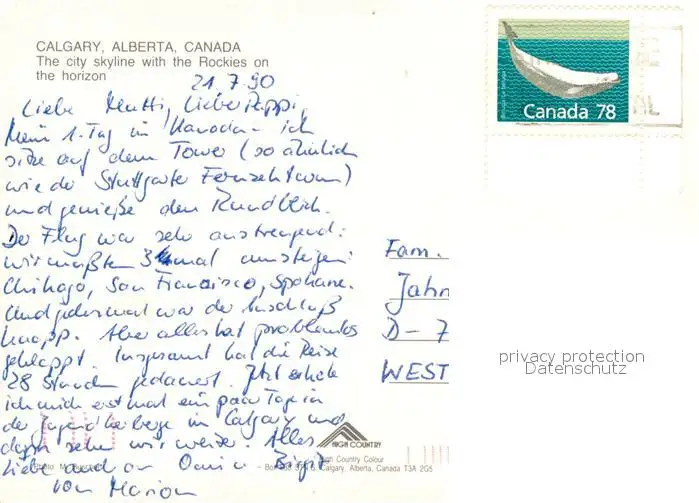 CALGARY, ALBERTA, CANADA
The city skyline with the Rockies on
the horizon
21.7.90
Liebe Mutti, Lieber Pappi,
Mein 1. Tag in Kanada - ich
sitze auf dem Tower (so ähnlich
wie der Stuttgarter Fernsehturm)
und genieße den Rundblick.
Der Flug war sehr anstrengend:
wir mußten 3 mal umsteigen:
Chikago, San Francisco, Spokane.
Und jedesmal war der Anschluß
knapp. Aber alles hat problemlos
geklappt. Insgesamt hat die Reise
28 Stunden gedauert. Jetzt erhole
ich mich erst mal ein paar Tage in
der Jugendherberge in Calgary und
dann sehen wir weiter. Alles
Liebe auch an Omi Birgit
von Marion
Canada 78
Fam.
Jahn
D-7
WEST
privacy protection
Datenschutz
HIGH COUNTRY
High Country Colour
Calgary, Alberta, Canada T3A 2G5
Photo: M.